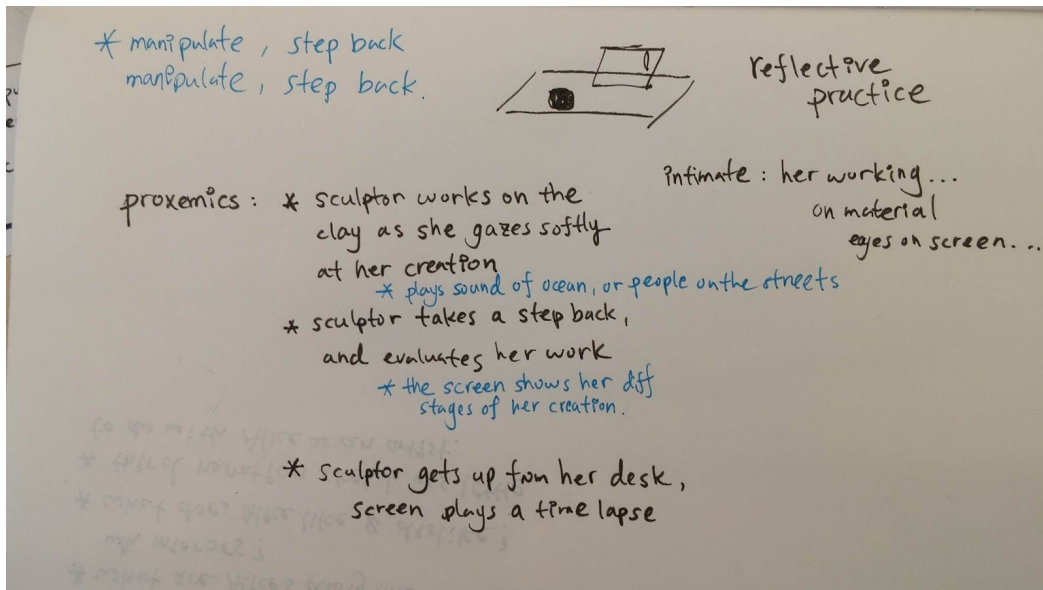 * manipulate, step back
manipulate, step back.
reflective
practice
intimate : her working...
on material
eyes on screen....
proxemics : * sculptor works on the
clay as she gazes softly
at her creation
* plays sound of ocean, or people on the streets
* sculptor takes a step back,
and evaluates her work
* the screen shows her diff
stages of her creation.
* sculptor gets up from her desk,
screen plays a time lapse